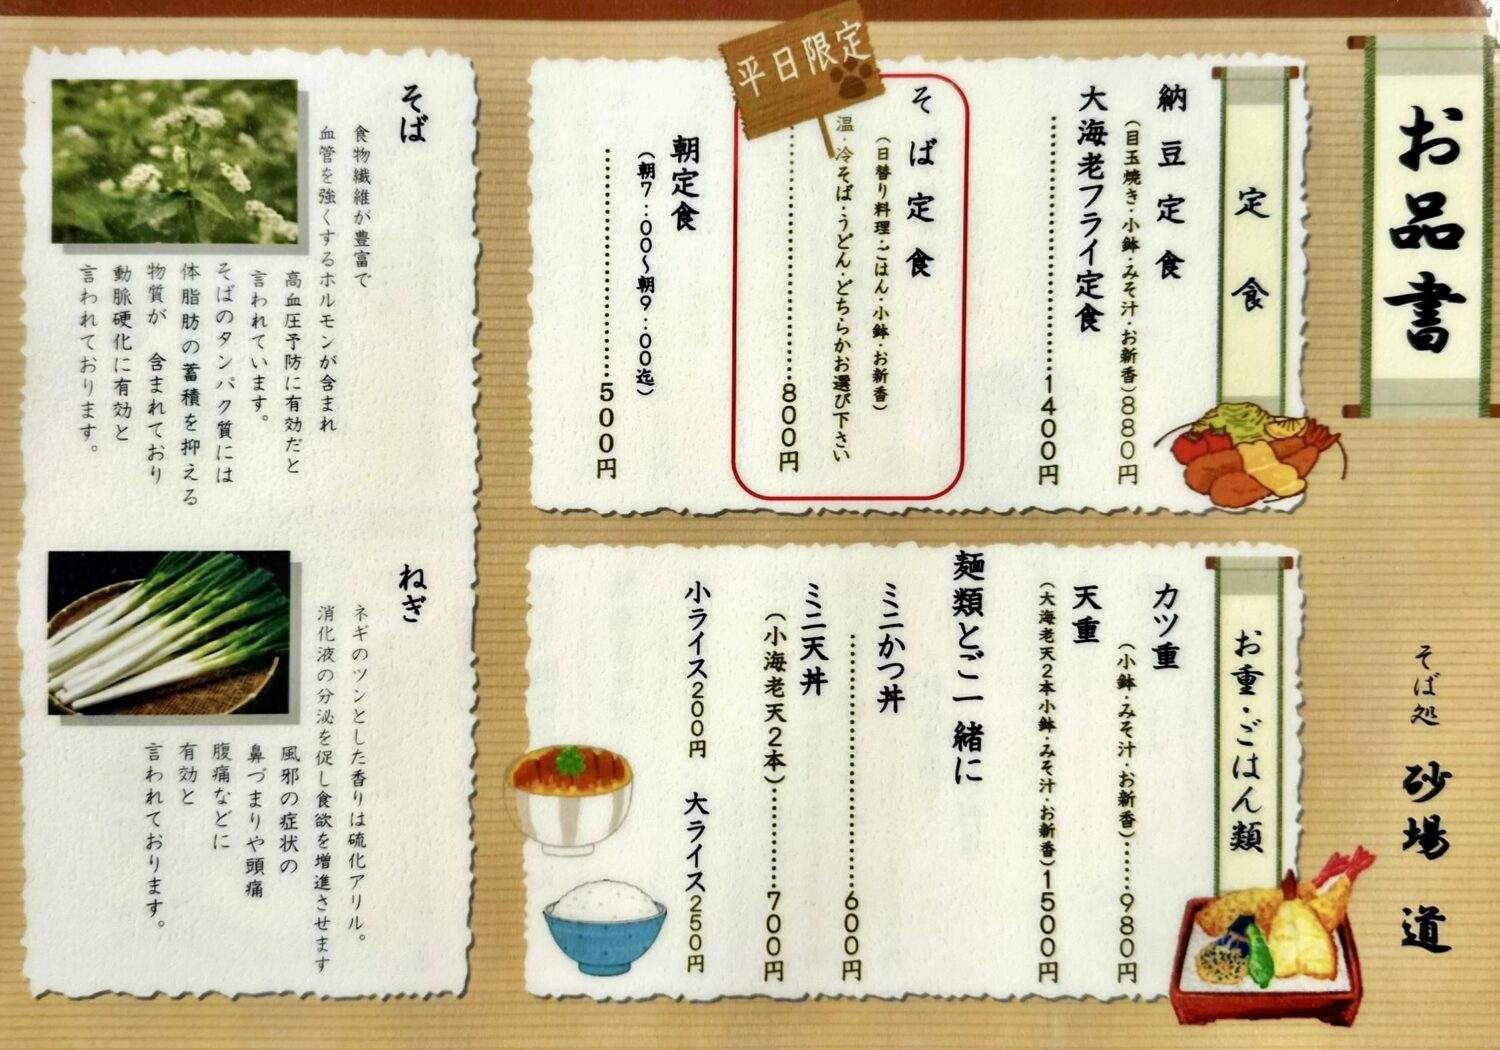 お品書
そば処 砂場 道
定食
納豆定食
(目玉焼き・小鉢・みそ汁・お新香)880円
大海老フライ定食
1400円
平日限定
そば定食
(日替り料理・ごはん・小鉢・お新香)
温・冷そば・うどん・どちらかお選び下さい
800円
朝定食
(朝7:00〜朝9:00迄)
500円
お重・ごはん類
カツ重
(小鉢・みそ汁・お新香)……980円
天重
(大海老天2本小鉢・みそ汁・お新香)1500円
麺類とご一緒に
ミニかつ丼
600円
ミニ天丼
(小海老天2本)………700円
小ライス200円 大ライス250円
そば
食物繊維が豊富で
血管を強くするホルモンが含まれ
高血圧予防に有効だと
言われています。
そばのタンパク質には
体脂肪の蓄積を抑える
物質が 含まれており
動脈硬化に有効と
言われております。
ねぎ
ネギのツンとした香りは硫化アリル。
消化液の分泌を促し食欲を増進させます
風邪の症状の
鼻づまりや頭痛
腹痛などに
有効と
言われております。